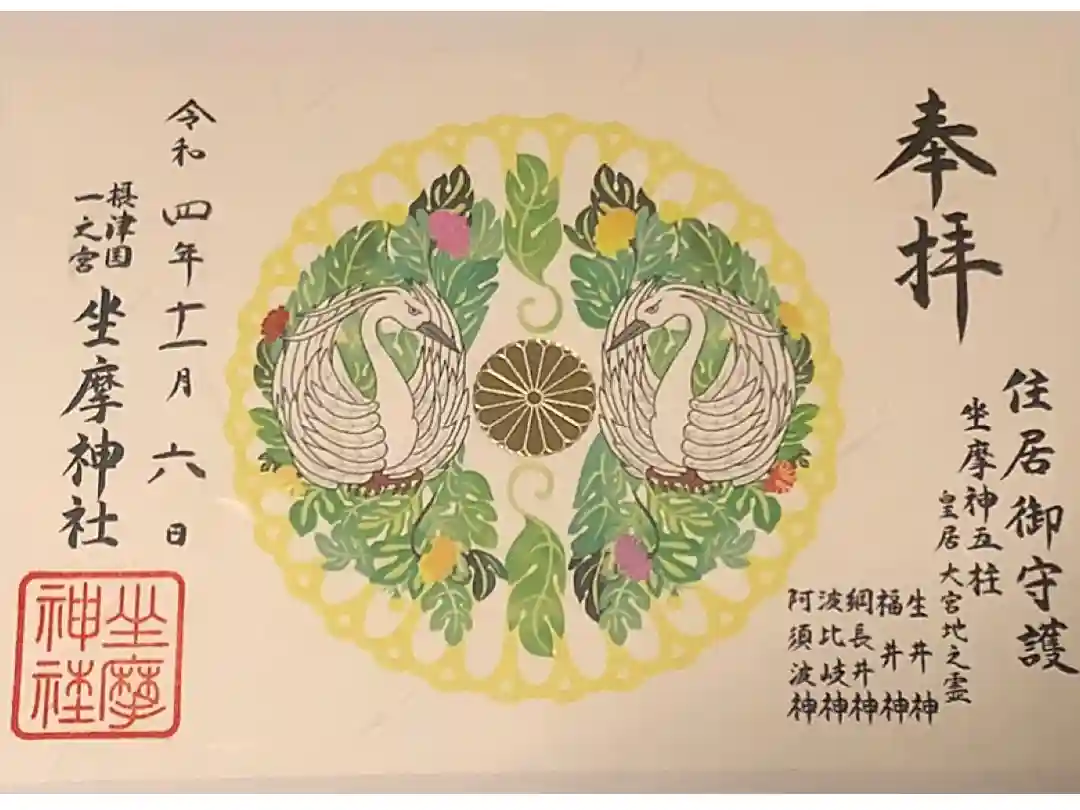 奉拝
住居御守護
坐摩神五柱
皇居大宮地之霊
生井神
福井神
綱長井神
波比岐神
阿須波神
令和四年十一月六日
摂津国
一之宮
坐摩神社
坐摩
神社